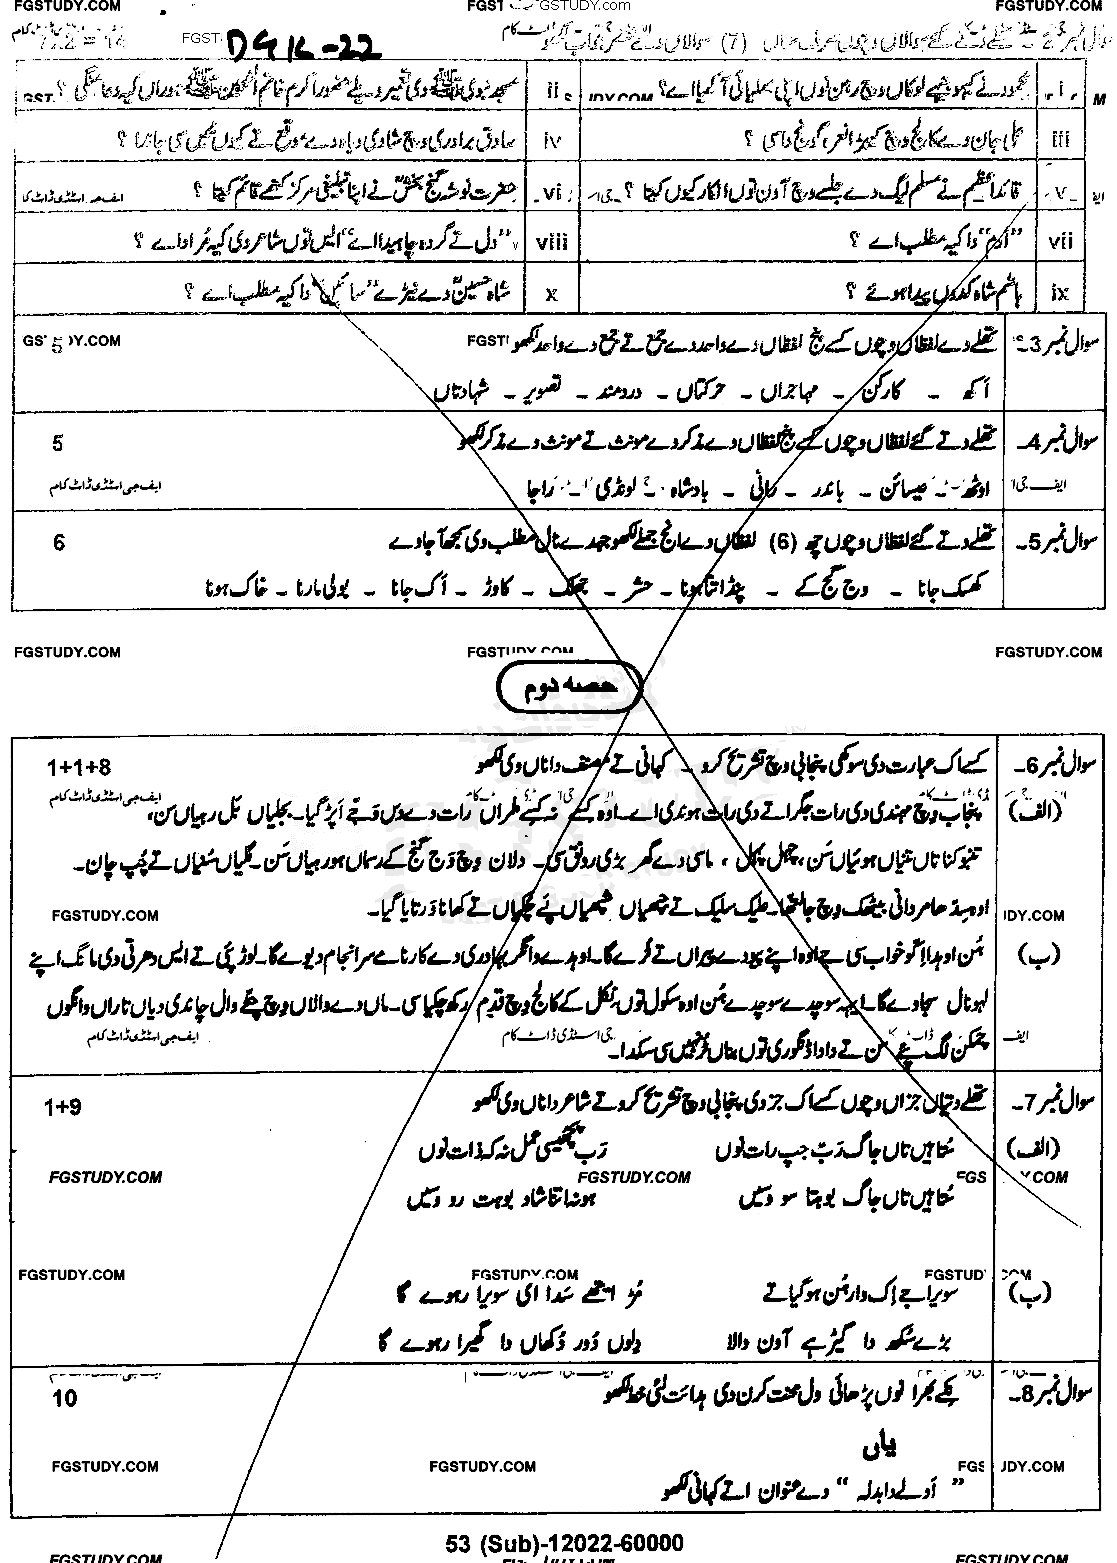 FGSTUDY.COM FGSTUDY.com FGSTUDY.COM
7x2=14 DGK-22
i محمود نے کیہو جیہے لوکاں وچ رہن نوں اپنی بھلیائی آکھیا اے؟ ii مسجد نبوی ﷺ دی تعمیر ویلے حضور اکرم خاتم النبیین ﷺ ہوراں کیہ دعا منگی ؟
iii گلی جان دے کالج وچ کیہڑا نعرہ گونج دا سی ؟ iv صادق برادری وچ شادی ویاہ دے موقع تے کیوں نہیں سی جاندا ؟
v قائداعظم نے مسلم لیگ دے جلسے وچ آون توں انکار کیوں کیتا ؟ vi حضرت نوشہ گنج بخش نے اپنا تبلیغی مرکز کتھے قائم کیتا ؟
vii دا کیہ مطلب اے ؟ viii "دل تے گردہ چاہیدا اے" ایس توں شاعر دی کیہ مراد اے ؟
ix ہاشم شاہ کدوں پیدا ہوئے ؟ x شاہ حسین دے نیڑے "سائیں" دا کیہ مطلب اے ؟
سوال نمبر 3۔ تھلے دے لفظاں وچوں کسے پنج لفظاں دے واحد دے جمع تے جمع دے واحد لکھو 5
اکھ ۔ کارکن ۔ مہاجراں ۔ حرکتاں ۔ دردمند ۔ تصویر ۔ شہادتاں
سوال نمبر 4۔ تھلے دتے گئے لفظاں وچوں کسے پنج لفظاں دے مذکر دے مونث تے مونث دے مذکر لکھو 5
اوٹھ ۔ عیسائن ۔ باندر ۔ رانی ۔ بادشاہ ۔ لونڈی ۔ راجا
سوال نمبر 5۔ تھلے دتے گئے لفظاں وچوں چھ (6) لفظاں دے انج جملے لکھو جیہدے نال مطلب دی سمجھ آ جاوے 6
کھسک جانا ۔ وج گج کے ۔ چٹا ہونا ۔ حشر ۔ جھک ۔ کاوڑ ۔ اک جانا ۔ بولی مارنا ۔ خاک ہونا
FGSTUDY.COM FGSTUDY.COM FGSTUDY.COM
حصہ دوم
سوال نمبر 6۔ کسے اک عبارت دی سوکھی پنجابی وچ تشریح کرو ۔ کہانی تے مصنف دا ناں وی لکھو 1+1+8
(الف) پنجاب وچ مہندی دی رات جگراتے دی رات ہوندی اے۔ اوہ کسے نہ کسے طراں رات دے دس وجے اپڑ گیا۔ بجلیاں بل رہیاں سن،
تنبو کناتاں تنیاں ہوئیاں سن، چہل پہل، ماسی دے گھر بڑی رونق سی۔ دلان وچ وج گج کے رسماں ہو رہیاں سن۔ گلیاں سنجیاں تے چپ چان۔
اوہ سدھا مردانی بیٹھک وچ جا لتھا۔ علیک سلیک تے جپھیاں شپھیاں پے چکیاں تے کھانا ورتایا گیا۔
FGSTUDY.COM
(ب) ہن اوہدا اکو خواب سی جے اوہ اپنے پیو دے پیراں تے ٹرے گا۔ اوہدے وانگر بہادری دے کارنامے سرانجام دیوے گا۔ لوڑ پئی تے ایس دھرتی دی مانگ اپنے
لہو نال سجاوے گا۔ ایہہ سوچدے سوچدے ہن اوہ سکول توں نکل کے کالج وچ قدم رکھ چکیا سی۔ ماں دے والاں وچ چٹے وال چاندی دیاں تاراں وانگوں
چمکن لگ پئے سن تے دادا ڈنگوری توں بناں ٹر نہیں سی سکدا۔
سوال نمبر 7۔ تھلے دتیاں جزاں وچوں کسے اک جز دی پنجابی وچ تشریح کرو تے شاعر دا ناں وی لکھو 1+9
(الف) ستا ایں تاں جاگ رب جپ رات نوں رب پچھیسی عمل نہ کہ ذات نوں
FGSTUDY.COM FGSTUDY.COM
ستا ایں تاں جاگ بوہتا سو وسیں ہسنا تھوڑا بوہت رو وسیں
FGSTUDY.COM FGSTUDY.COM
(ب) سویرا جے اک وار ہن ہو گیا تے مڑ ایتھے سدا ای سویرا رہوے گا
بڑے سکھ دا گیڑ ہے آون والا دلوں دور دکھاں دا گھیرا رہوے گا
سوال نمبر 8۔ نکے بھرا نوں پڑھائی ول محنت کرن دی ہدائت لئی خط لکھو 10
یاں
FGSTUDY.COM FGSTUDY.COM
" اولے دا بدلہ " دے عنوان اتے کہانی لکھو
53 (Sub)-12022-60000
FGSTUDY.COM FGSTUDY.COM